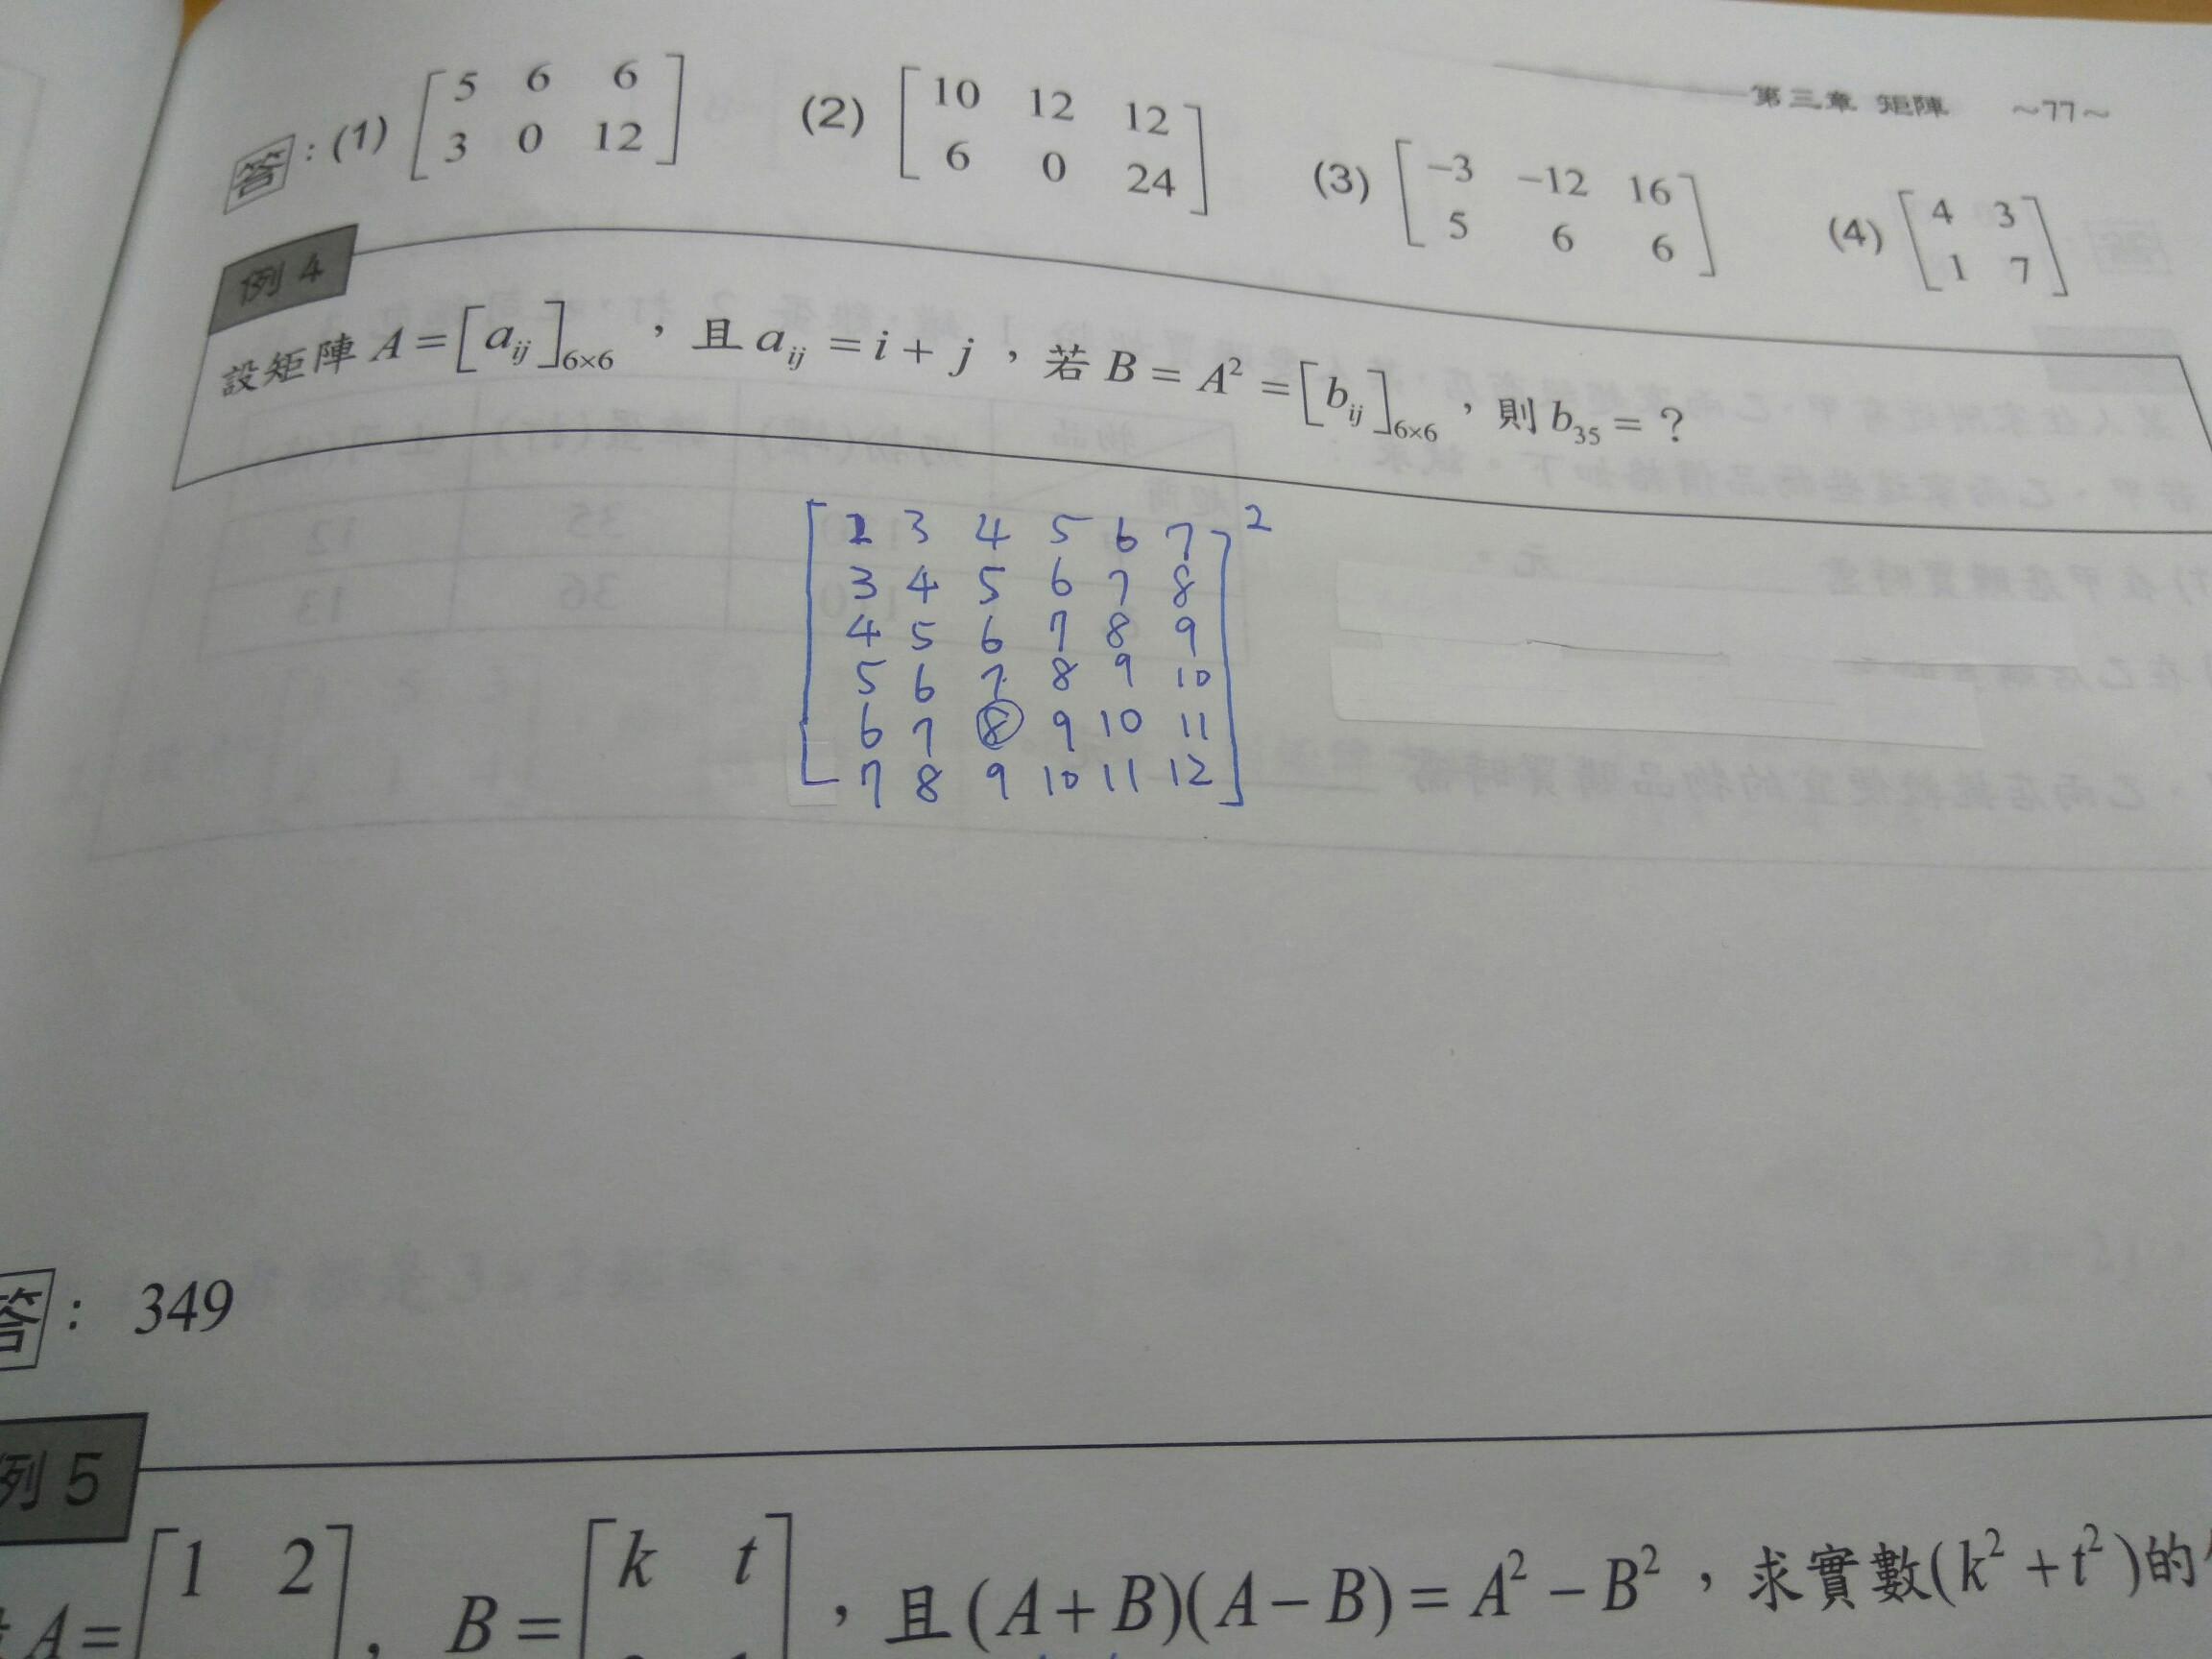 第三章 矩陣 ～77～
答：(1) [5 6 6
3 0 12] (2) [10 12 12
6 0 24] (3) [−3 −12 16
5 6 6] (4) [4 3
1 7]
例 4
設矩陣 A = [aij]6×6 ，且 aij = i + j ，若 B = A² = [bij]6×6 ，則 b35 = ？
[2 3 4 5 6 7]²
3 4 5 6 7 8
4 5 6 7 8 9
5 6 7 8 9 10
6 7 8 9 10 11
7 8 9 10 11 12
答： 349
例 5
A = [1 2 ， B = [k t] ，且 (A + B)(A − B) = A² − B² ，求實數(k² + t²)的